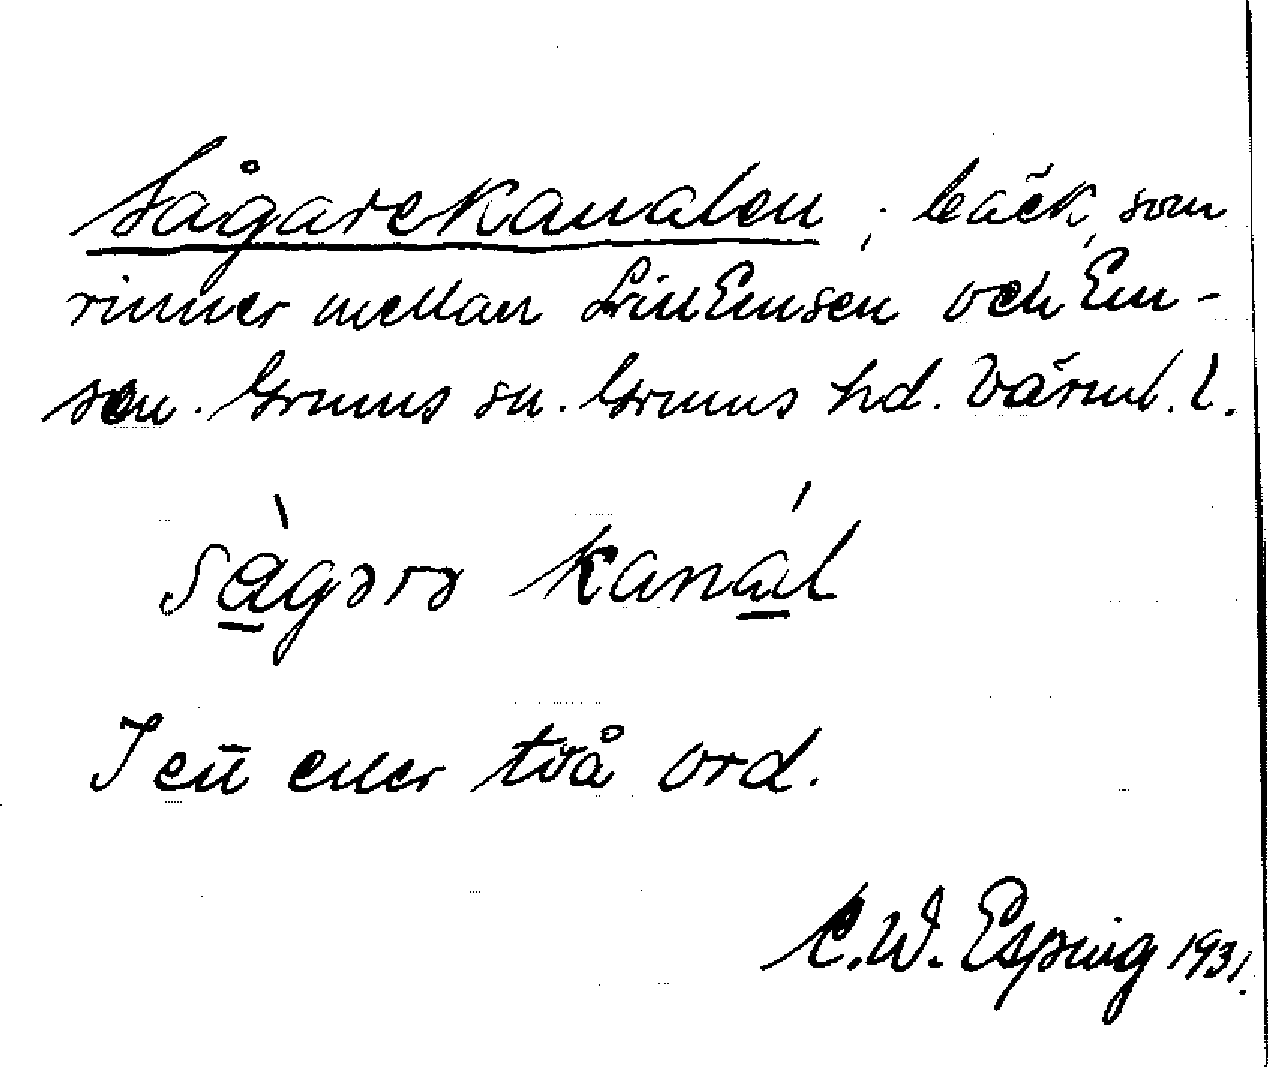 Sågarekanalen ; bäck, som
rinner mellan LillEmsen och Em-
sen. Grums sn. Grums hd. Värml. l.
sågərə kanal
I ett eller två ord.
C.W. Esping 1931.